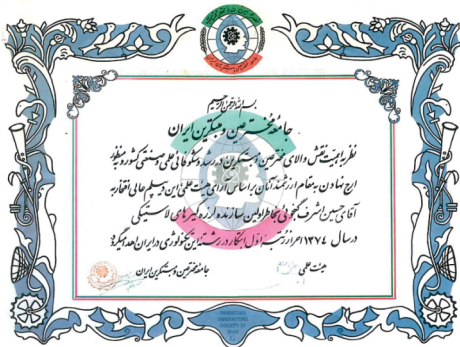 بسم الله الرحمن الرحیم
جامعه مخترعین و مبتکرین ایران
نظر به اهمیت نقش والای مخترعین و مبتکرین در رشد و شکوفائی علمی و صنعتی کشور و به منظور
ارج نهادن به مقام ارزشمند آنان بر اساس آرای هیئت علمی این دیپلم عالی افتخار به
آقای حسین اشرف گنجوئی بخاطر اولین سازنده لرزه گیرهای لاستیکی
در سال ۱۳۷۴ احراز رتبه اول ابتکار در رشته این تکنولوژی در ایران اهداء میگردد
هیئت علمی
جامعه مخترعین و مبتکرین ایران
INVENTORS
INNOVATORS
SOCIETY OF
IRAN